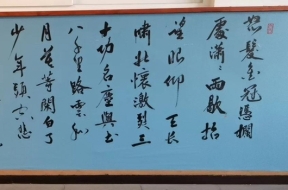 怒髮冲冠憑欄
處瀟瀟雨歇抬
望眼仰天長
嘯壯懷激烈三
十功名塵與土
八千里路雲和
月莫等閑白了
少年頭空悲